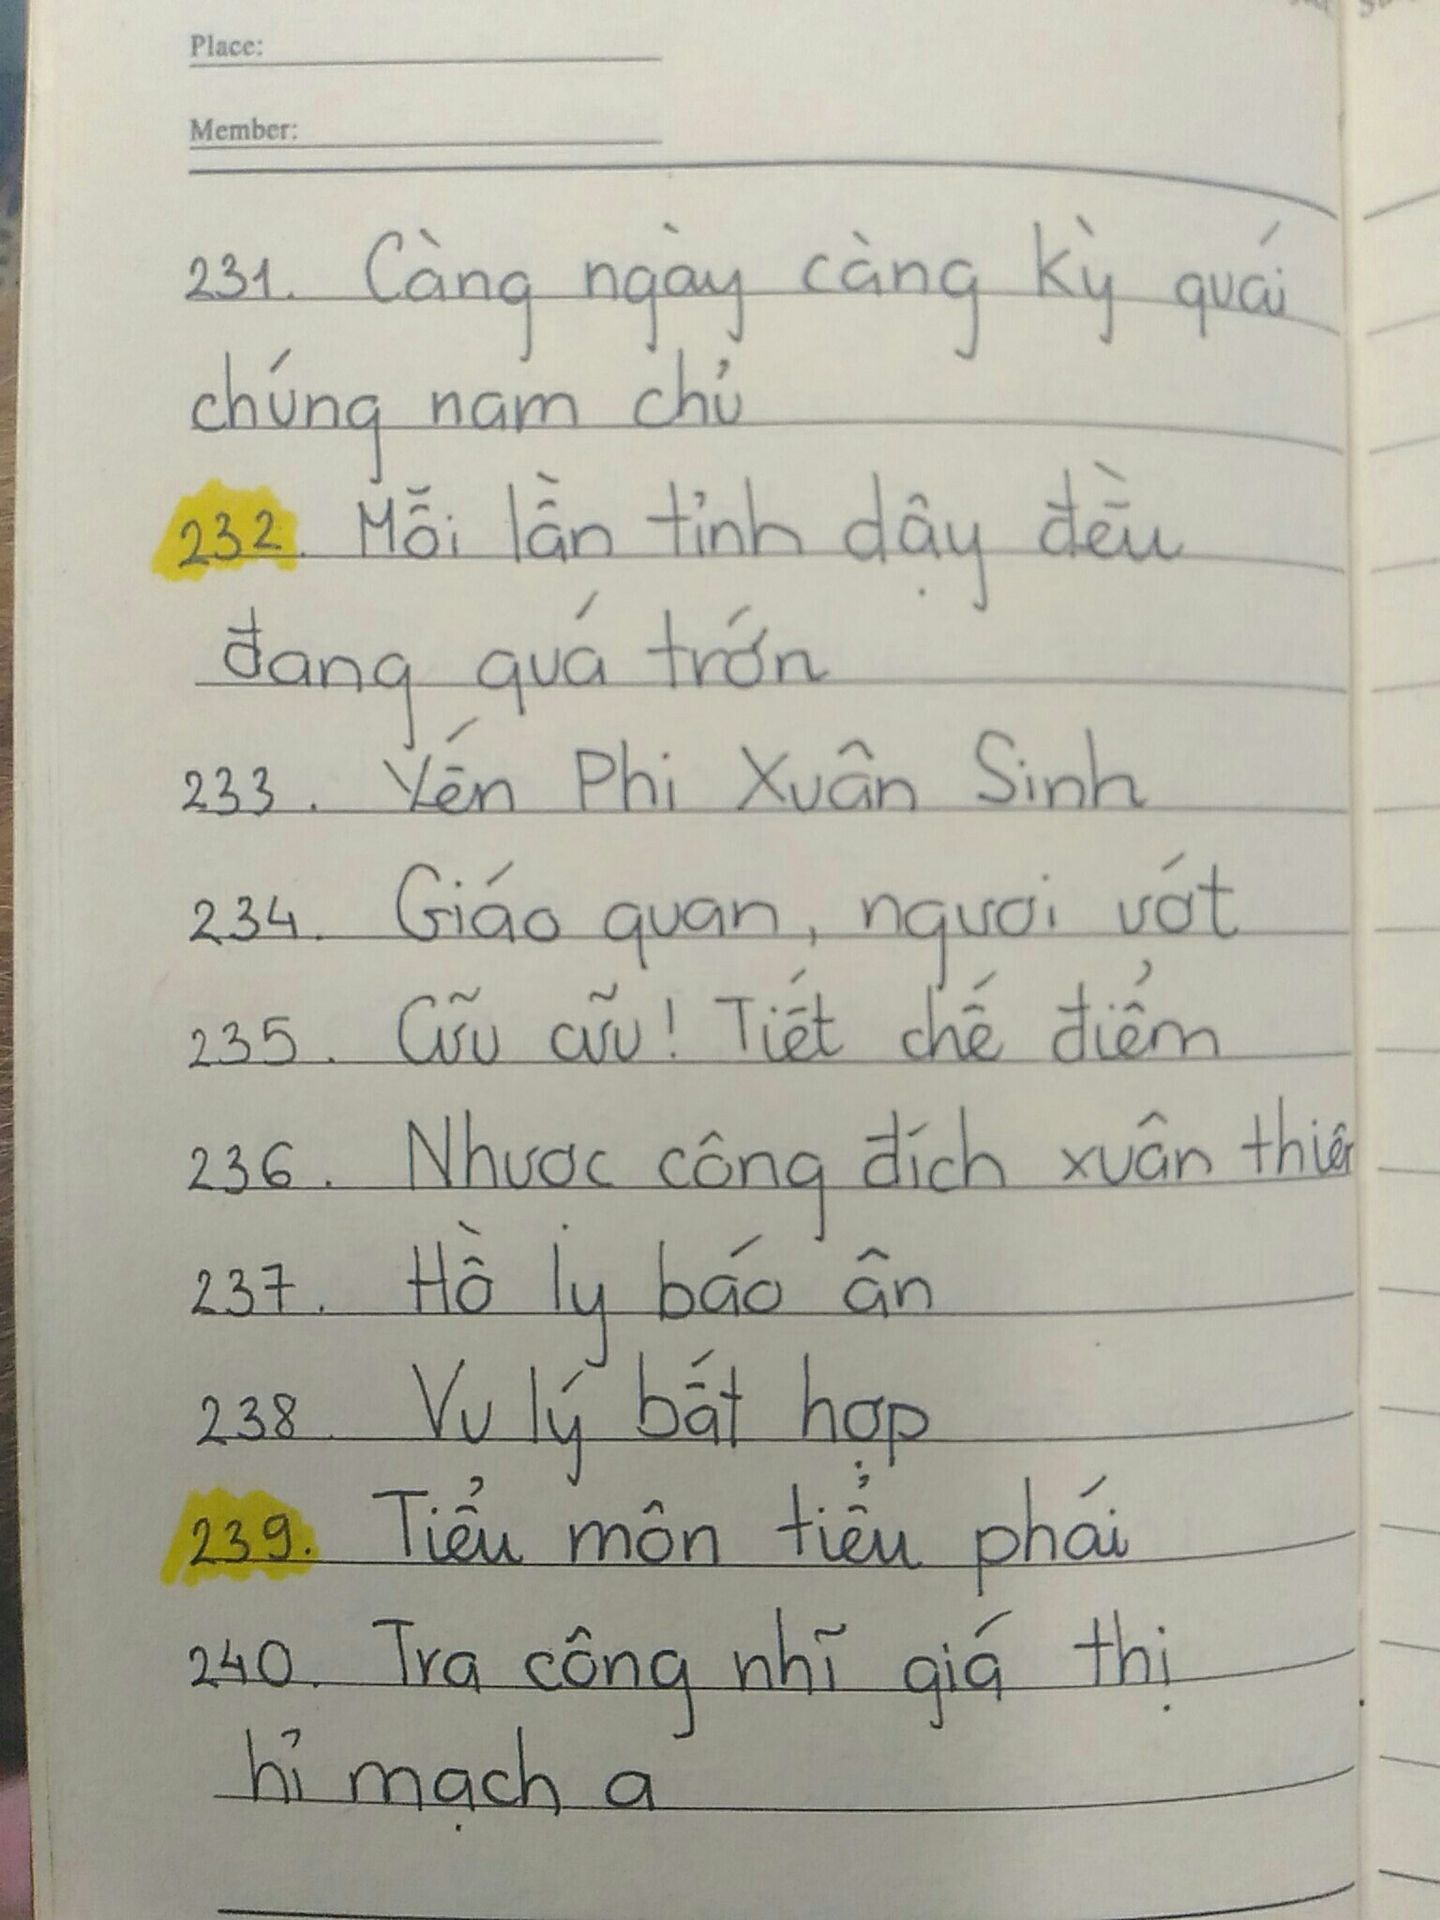 Place:
Member:
231. Càng ngày càng kỳ quái
chúng nam chủ
232. Mỗi lần tỉnh dậy đều
đang quá trớn
233. Yến Phi Xuân Sinh
234. Giáo quan, ngươi vớt
235. Cữu cữu! Tiết chế điểm
236. Nhược công đích xuân thiên
237. Hồ ly báo ân
238 Vu lý bất hợp
239. Tiểu môn tiểu phái
240. Tra công nhĩ giá thị
hỉ mạch a